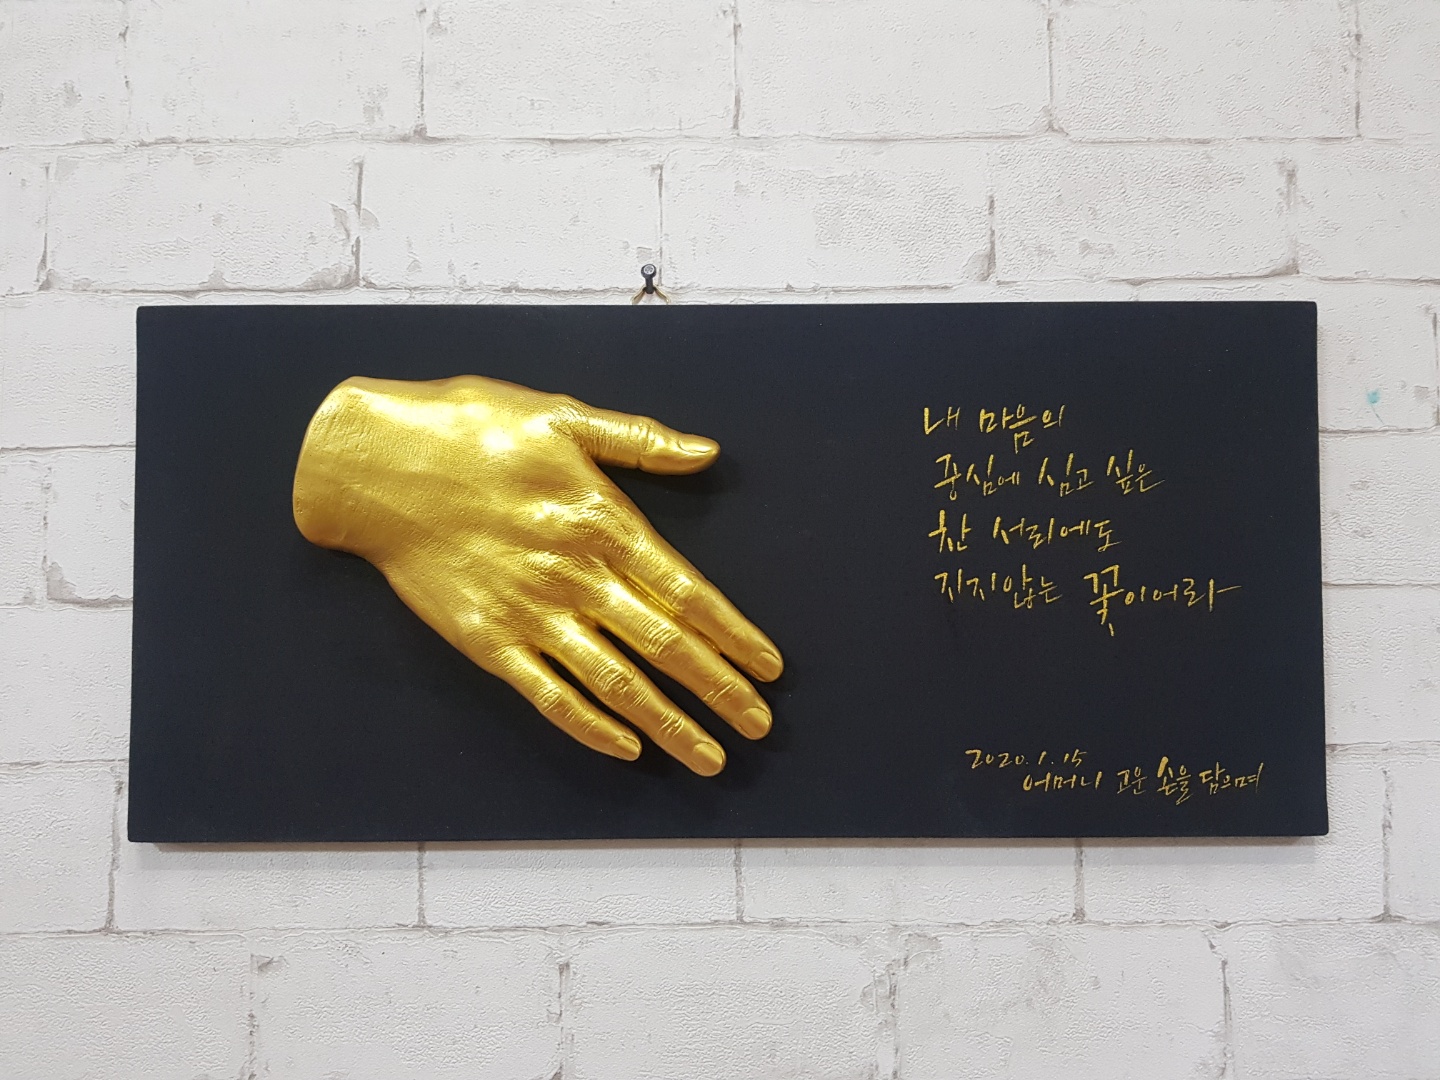 내 마음의
중심에 심고 싶은
찬 서리에도
지지않는 꽃이어라
2020.1.15
어머니 고운 손을 담으며